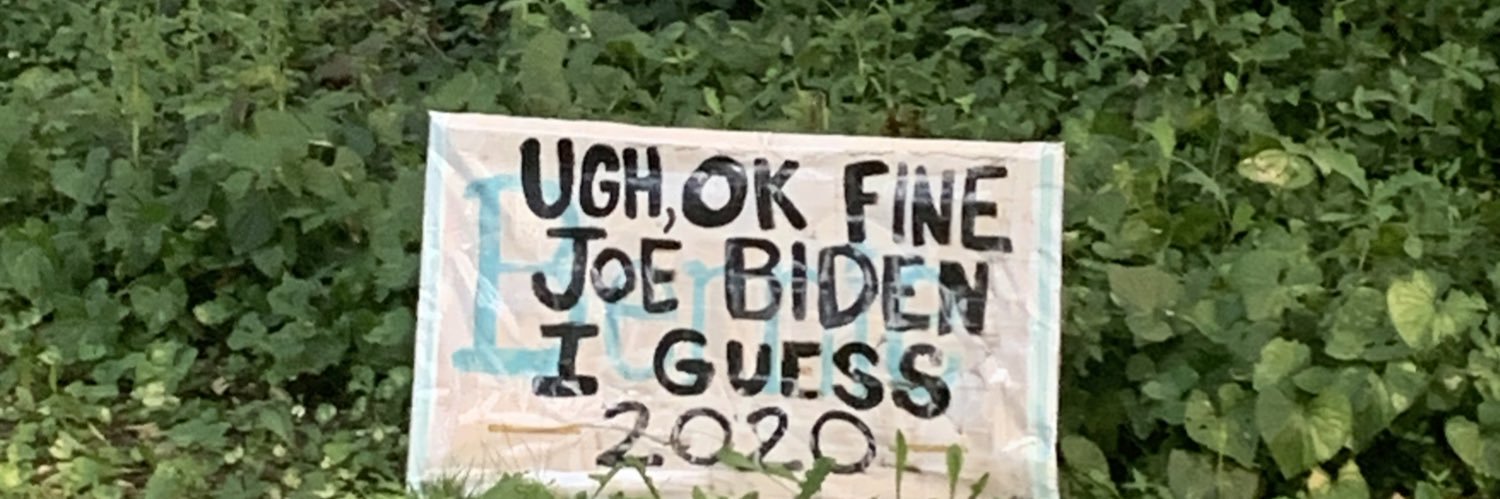 UGH, OK FINE
JOE BIDEN
I GUESS
2020